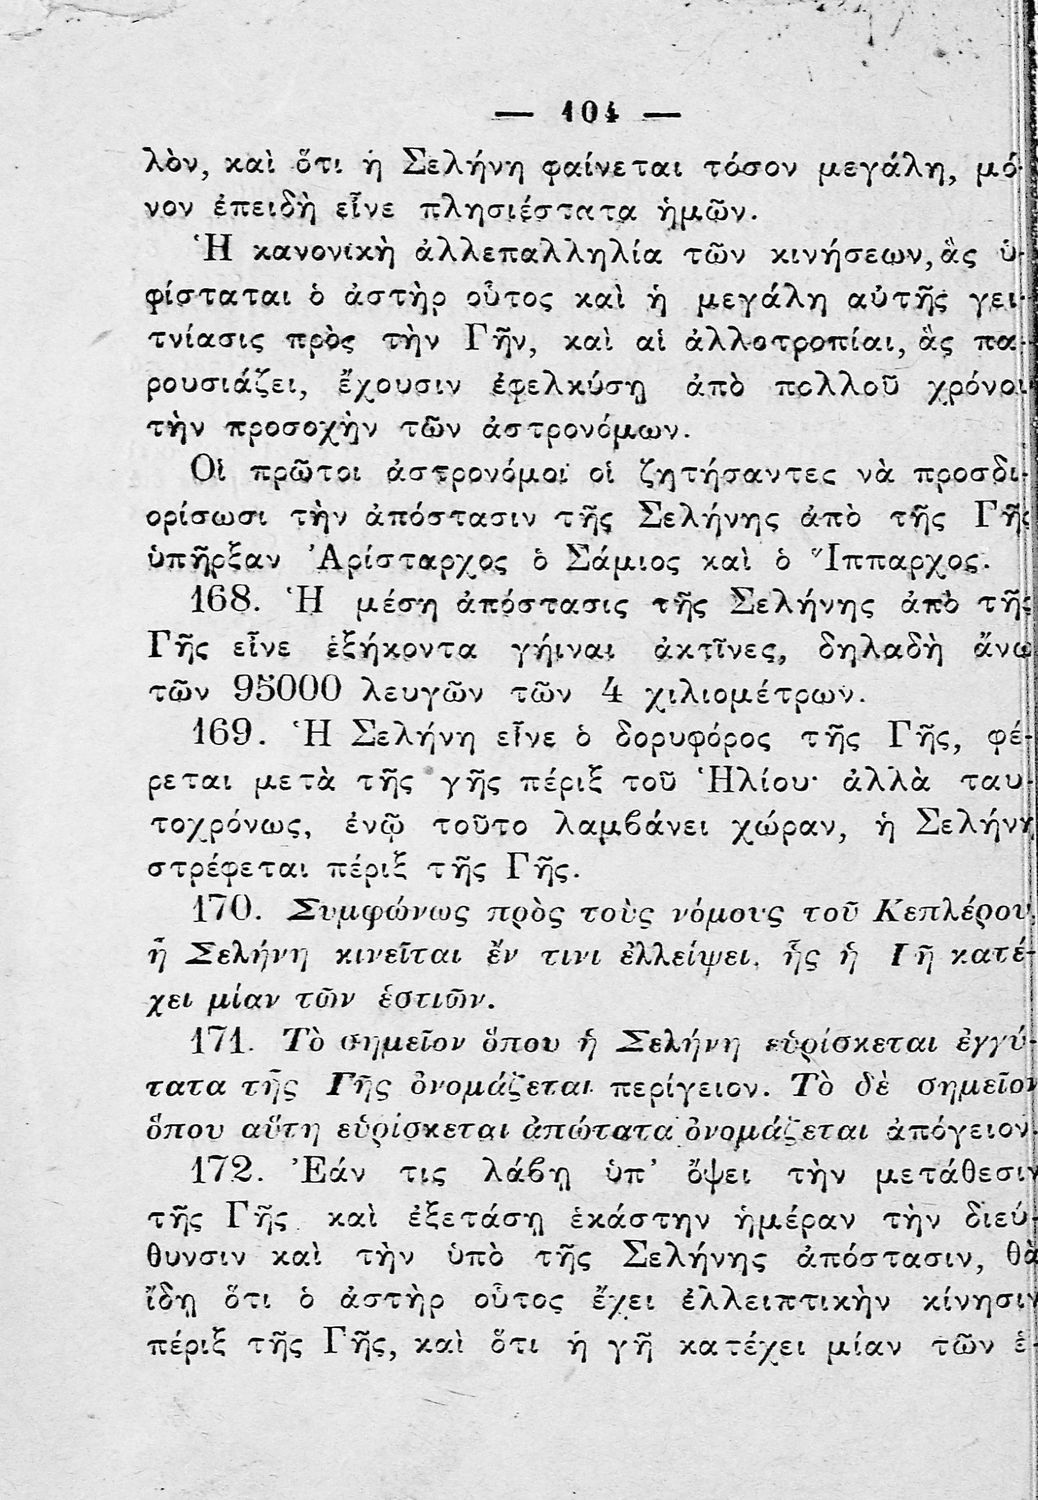 — 104 —
λὸν, καὶ ὅτι ἡ Σελήνη φαίνεται τόσον μεγάλη, μό-
νον ἐπειδὴ εἶνε πλησιέστατα ἡμῶν.
Ἡ κανονικὴ ἀλλεπαλληλία τῶν κινήσεων, ἃς ὑ-
φίσταται ὁ ἀστὴρ οὗτος καὶ ἡ μεγάλη αὐτῆς γει-
τνίασις πρὸς τὴν Γῆν, καὶ αἱ ἀλλοτροπίαι, ἃς πα-
ρουσιάζει, ἔχουσιν ἐφελκύσῃ ἀπὸ πολλοῦ χρόνου
τὴν προσοχὴν τῶν ἀστρονόμων.
Οἱ πρῶτοι ἀστρονόμοι οἱ ζητήσαντες νὰ προσδι-
ορίσωσι τὴν ἀπόστασιν τῆς Σελήνης ἀπὸ τῆς Γῆς
ὑπῆρξαν Ἀρίσταρχος ὁ Σάμιος καὶ ὁ Ἵππαρχος.
168. Ἡ μέση ἀπόστασις τῆς Σελήνης ἀπὸ τῆς
Γῆς εἶνε ἑξήκοντα γήιναι ἀκτῖνες, δηλαδὴ ἄνω
τῶν 95000 λευγῶν τῶν 4 χιλιομέτρων.
169. Ἡ Σελήνη εἶνε ὁ δορυφόρος τῆς Γῆς, φέ-
ρεται μετὰ τῆς γῆς πέριξ τοῦ Ἡλίου· ἀλλὰ ταυ-
τοχρόνως, ἐνῷ τοῦτο λαμβάνει χώραν, ἡ Σελήνη
στρέφεται πέριξ τῆς Γῆς.
170. Συμφώνως πρὸς τοὺς νόμους τοῦ Κεπλέρου,
ἡ Σελήνη κινεῖται ἔν τινι ἐλλείψει, ἧς ἡ Γῆ κατέ-
χει μίαν τῶν ἑστιῶν.
171. Τὸ σημεῖον ὅπου ἡ Σελήνη εὑρίσκεται ἐγγύ-
τατα τῆς Γῆς ὀνομάζεται περίγειον. Τὸ δὲ σημεῖον
ὅπου αὕτη εὑρίσκεται ἀπώτατα ὀνομάζεται ἀπόγειον.
172. Ἐάν τις λάβῃ ὑπ’ ὄψει τὴν μετάθεσιν
τῆς Γῆς καὶ ἐξετάσῃ ἑκάστην ἡμέραν τὴν διεύ-
θυνσιν καὶ τὴν ὑπὸ τῆς Σελήνης ἀπόστασιν, θὰ
ἴδῃ ὅτι ὁ ἀστὴρ οὗτος ἔχει ἐλλειπτικὴν κίνησιν
πέριξ τῆς Γῆς, καὶ ὅτι ἡ γῆ κατέχει μίαν τῶν ἑ-